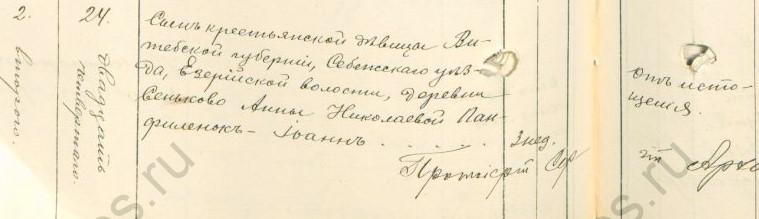 2.
второго.
24.
двадцать
четвертаго.
Сынъ крестьянской дѣвицы Ви-
тебской губернiи, Себежскаго уѣз-
да, Езерiйской волости, деревни
Сеньково Анны Николаевой Пан-
филенокъ – Iоаннъ . . . . . 3 нед.
Протоiерей Сер
отъ исто-
щенiя.
гiй Архо
os.ru
s.ru